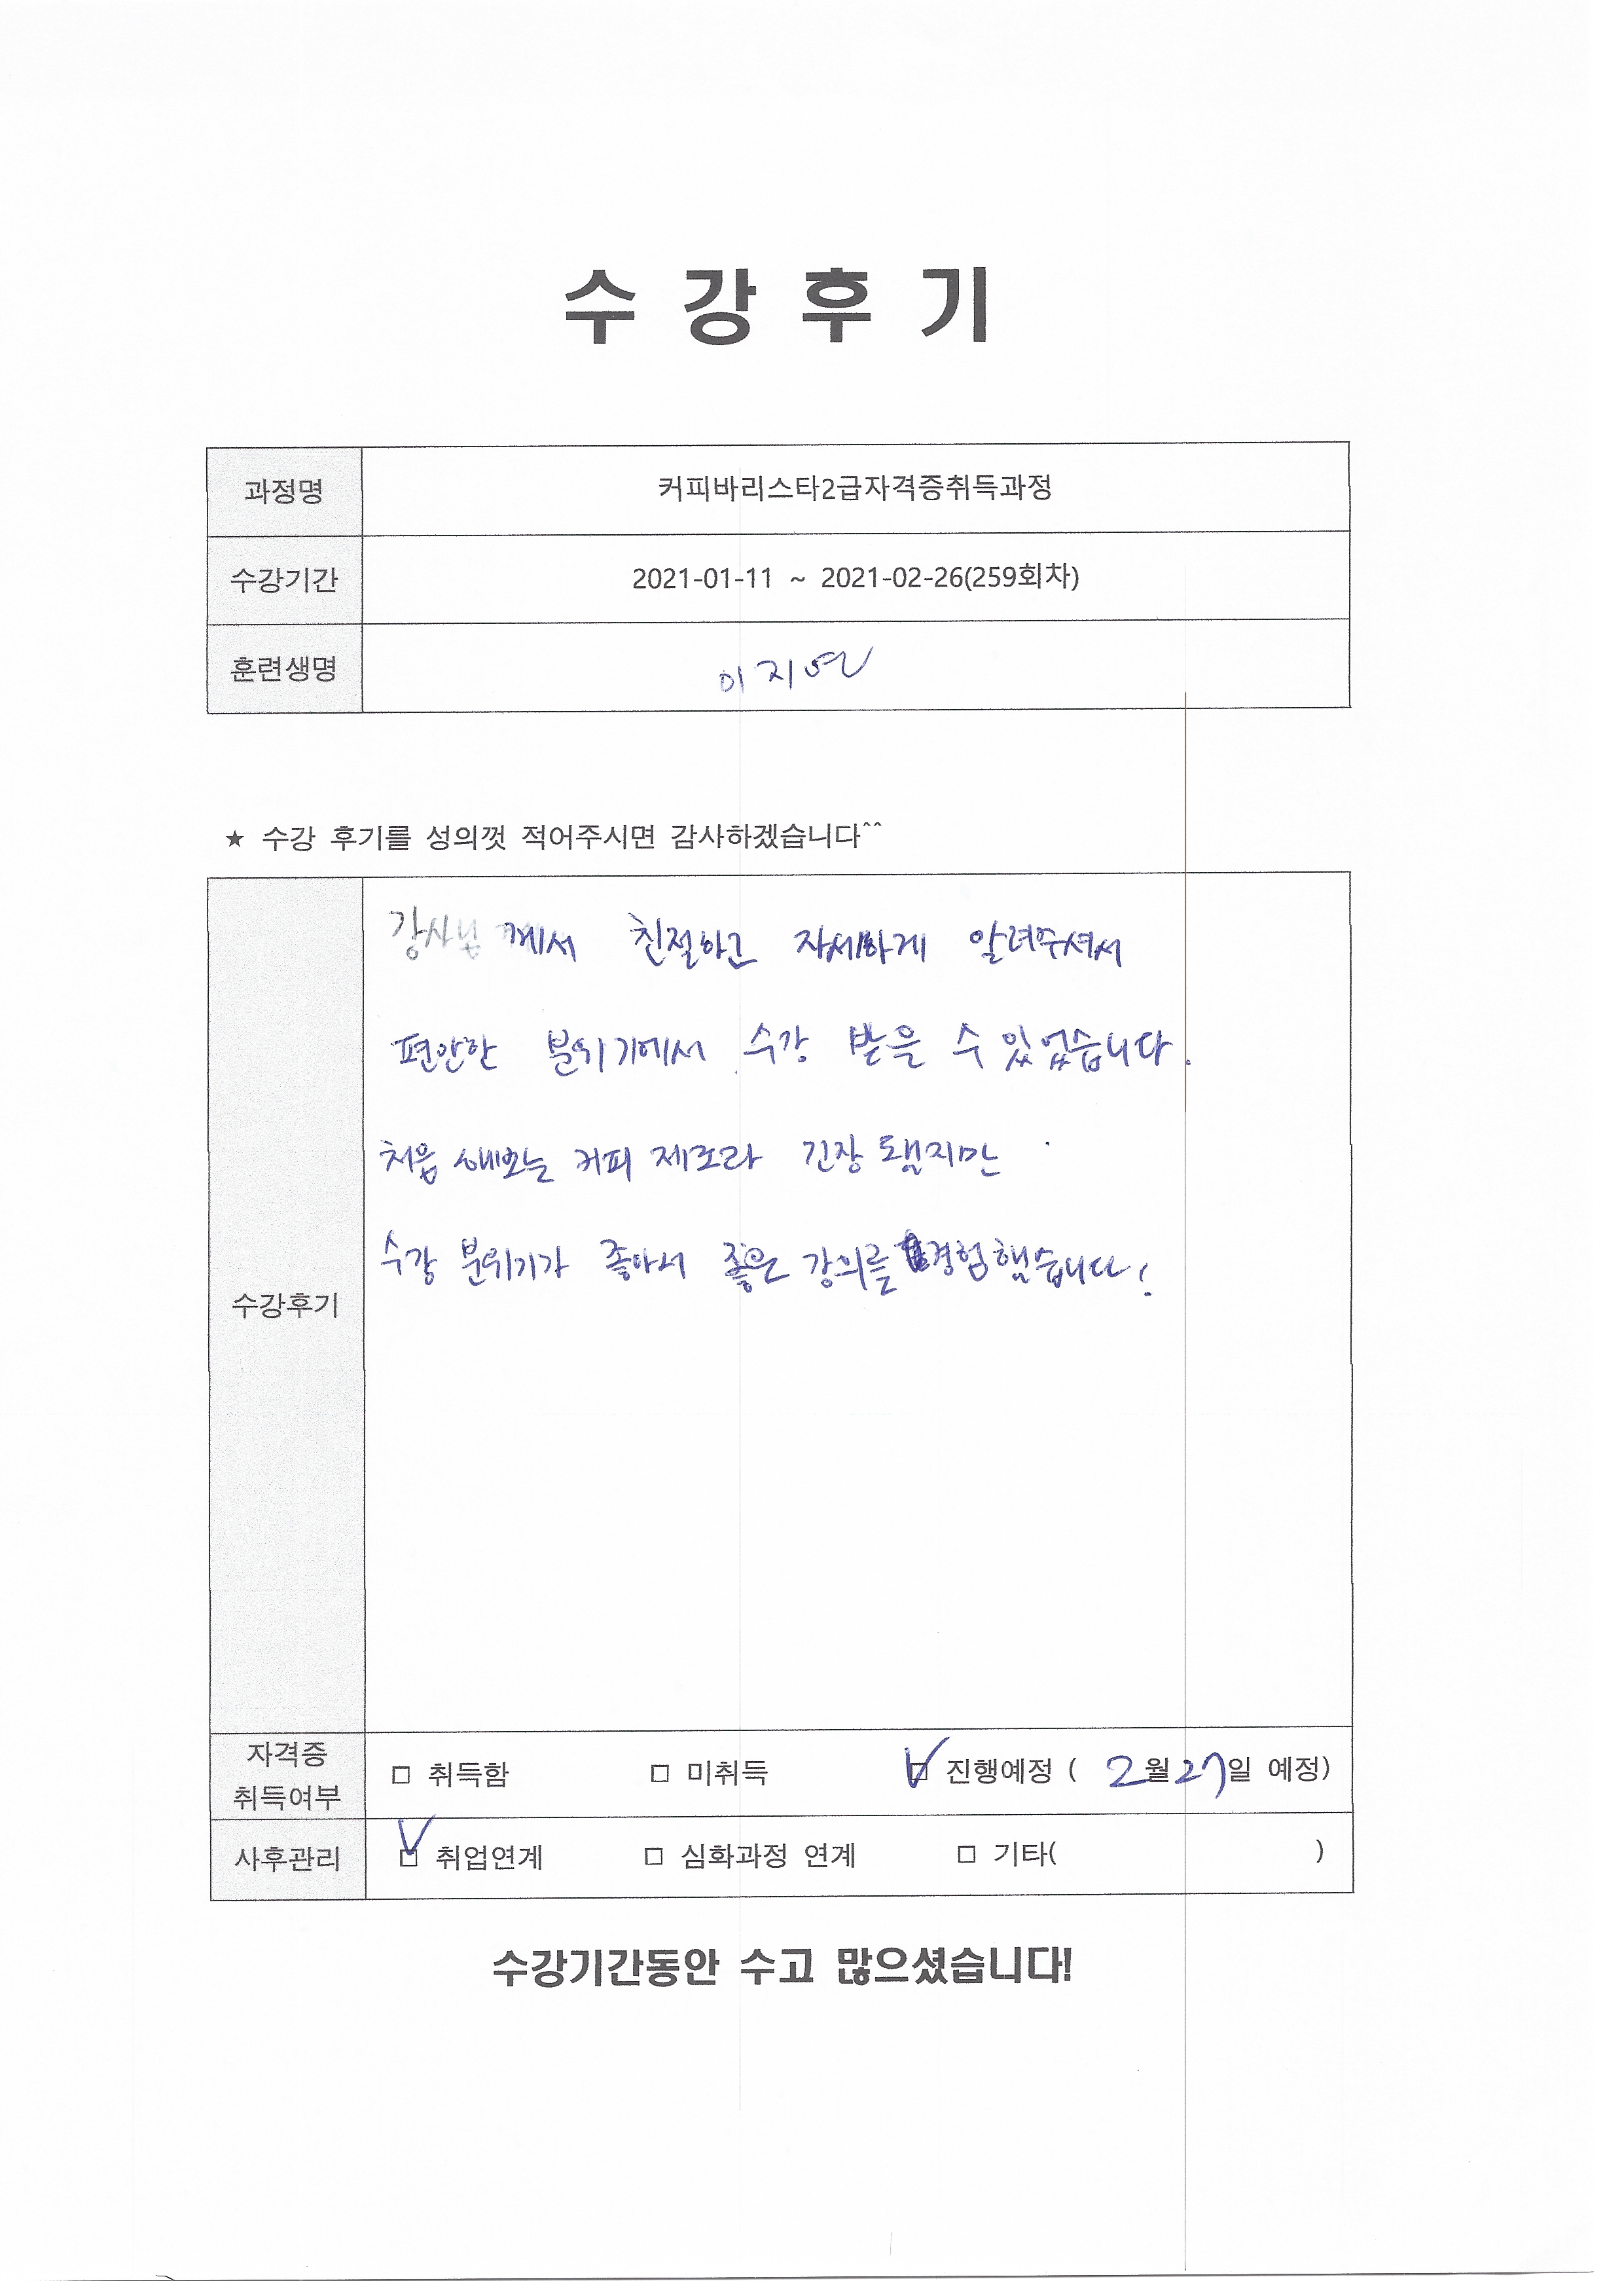 수 강 후 기
과정명 커피바리스타2급자격증취득과정
수강기간 2021-01-11 ~ 2021-02-26(259회차)
훈련생명 이지연
★ 수강 후기를 성의껏 적어주시면 감사하겠습니다^^
수강후기
강사님께서 친절하고 자세하게 알려주셔서
편안한 분위기에서 수강 받을 수 있었습니다.
처음 해보는 커피 제조라 긴장 됐지만
수강 분위기가 좋아서 좋은 강의를 경험했습니다!
자격증 취득여부 □ 취득함 □ 미취득 ☑ 진행예정 ( 2월 27일 예정)
사후관리 ☑ 취업연계 □ 심화과정 연계 □ 기타( )
수강기간동안 수고 많으셨습니다!